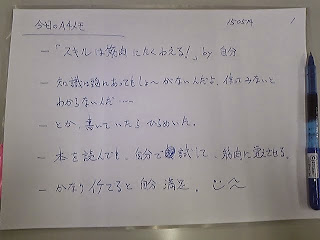 今日のA4メモ 150514 1
ー「スキルは筋肉にたくわえる!」by 自分
ー 知識は頭にあってもしょ〜がないんだよ、使ってみないと
わからないんだ……
ー とか、書いていたらひらめいた。
ー 本を読んでも、自分で試して、筋肉に覚えさせる。
ー かなりイケてると自分満足。